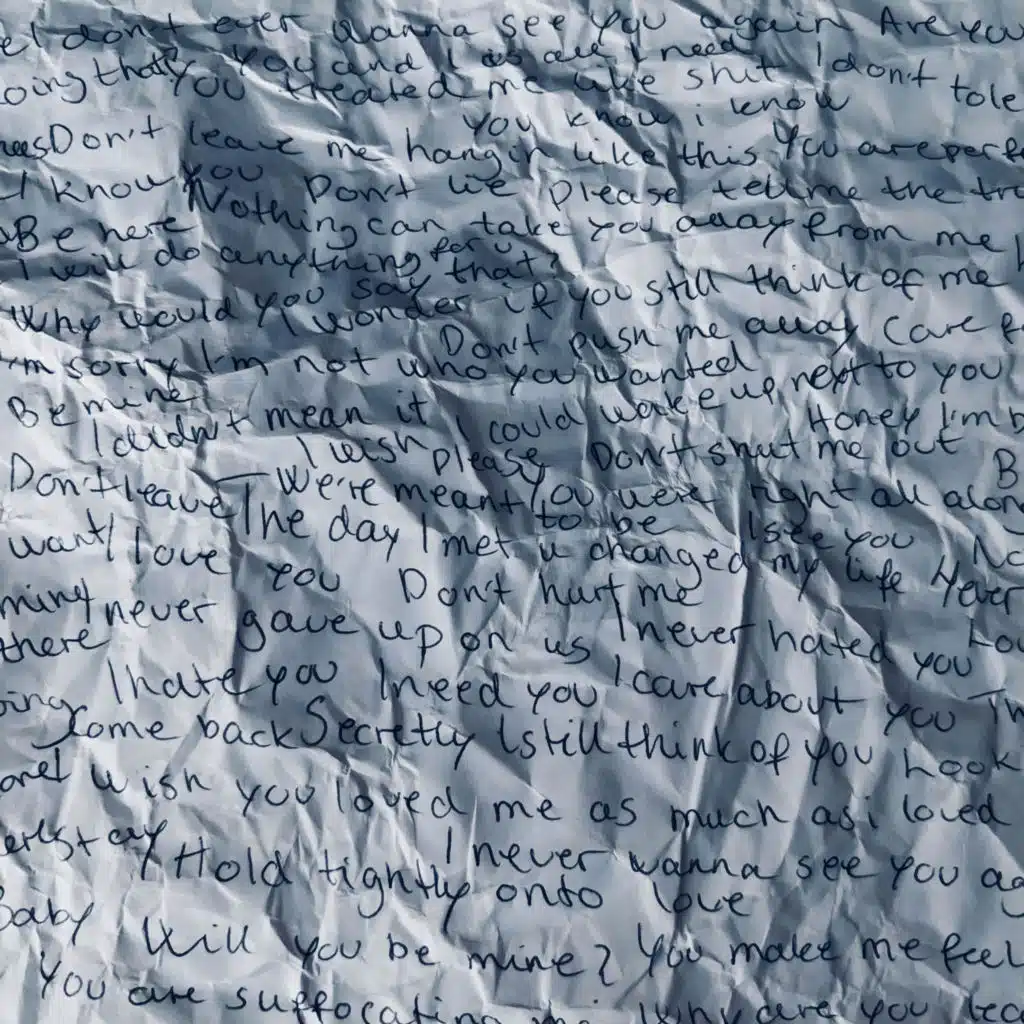 I don't ever wanna see you again Are you
You and I is all I need
oing that You treated me like shit I don't tole
You know i know
Don't leave me hangin like this You are perfe
I know you
Nothing Don't lie Please tell me the tru
Be here can take you away from me
I will do anything for u
Why would you say that
I wonder if you still think of me
Don't push me away Care f
I'm sorry I'm not who you wanted
Be mine I wish I could wake up next to you
I didn't mean it Honey I'm b
Please Don't shut me out B
Don't leave We're meant to be You were right all along
The day I met u changed my life I see you No
want I love you Don't hurt me Never
mine I never gave up on us I never hated you Lo
there
I hate you I need you I care about you Th
oing
Come back Secretly I still think of you Look
one I wish you loved me as much as i loved
stay I never wanna see you ag
Hold tightly onto love
Baby Will you be mine? You make me feel
You are suffocating me Why are you lea